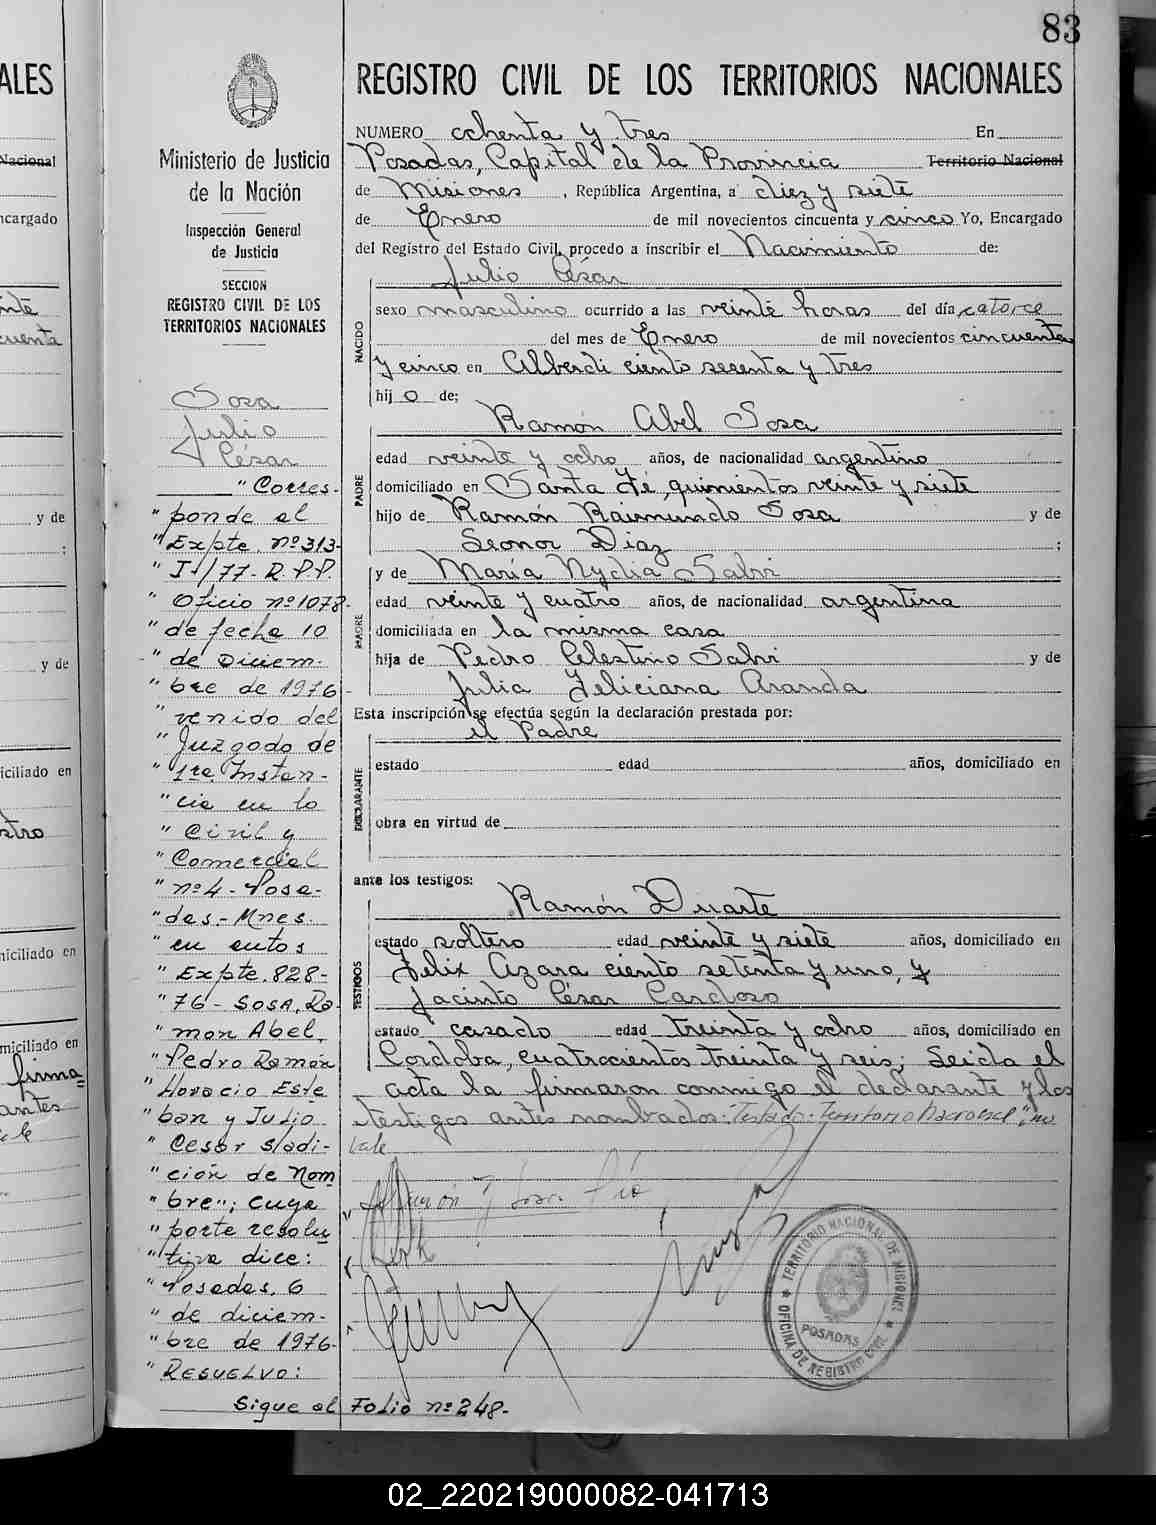 83
REGISTRO CIVIL DE LOS TERRITORIOS NACIONALES
Ministerio de Justicia
de la Nación
Inspección General
de Justicia
SECCION
REGISTRO CIVIL DE LOS
TERRITORIOS NACIONALES
Sosa
Julio
César
"Corres-
"ponde al
"Expte. nº 313-
"J-/77-R.P.P.
"Oficio nº 1078-
"de fecha 10
"de Diciem-
"bre de 1976-
"venido del
"Juzgado de
"1ra. Instan-
"cia en lo
"Civil y
"Comercial
"nº 4-Posa-
"das.-Mnes.
"en autos
"Expte. 828-
"76-SOSA, Ra-
"mon Abel,
"Pedro Ramón
"Horacio Este
"ban y Julio
"Cesar s/adi-
"ción de Nom
"bre"; cuya
"parte resolu
"tiva dice:
"Posadas, 6
"de diciem-
"bre de 1976-
"RESUELVO:
Sigue al Folio nº 248.-
NUMERO ochenta y tres En
Posadas, Capital de la Provincia Territorio Nacional
de Misiones, República Argentina, a diez y siete
de Enero de mil novecientos cincuenta y cinco Yo, Encargado
del Registro del Estado Civil, procedo a inscribir el Nacimiento de:
Julio César
NACIDO
sexo masculino ocurrido a las veinte horas del día catorce
del mes de Enero de mil novecientos cincuenta
y cinco en Alberdi ciento sesenta y tres
hijo de;
Ramón Abel Sosa
PADRE
edad veinte y ocho años, de nacionalidad argentino
domiciliado en Santa Fé, quinientos veinte y siete
hijo de Ramón Raimundo Sosa y de
Leonor Diaz ;
y de María Nydia Salvi
MADRE
edad veinte y cuatro años, de nacionalidad argentina
domiciliada en la misma casa
hija de Pedro Celestino Salvi y de
Julia Feliciana Aranda
Esta inscripción se efectúa según la declaración prestada por:
el Padre
DECLARANTE
estado edad años, domiciliado en
obra en virtud de
ante los testigos:
Ramón Duarte
TESTIGOS
estado soltero edad veinte y siete años, domiciliado en
Felix Azara ciento setenta y uno, y
Jacinto César Cardozo
estado casado edad treinta y ocho años, domiciliado en
Cordoba, cuatrocientos treinta y seis; Leida el
acta la firmaron conmigo el declarante y los
testigos antes nombrados: Testado: Territorio Nacional "no
vale
TERRITORIO NACIONAL DE MISIONES
POSADAS
OFICINA DE REGISTRO CIVIL
02_220219000082-041713